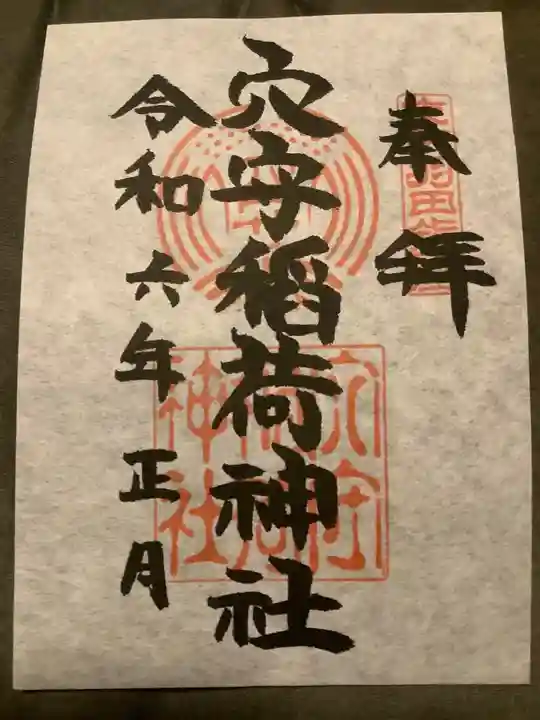 奉拝
穴守稲荷神社
令和六年正月
穴守稲荷神社